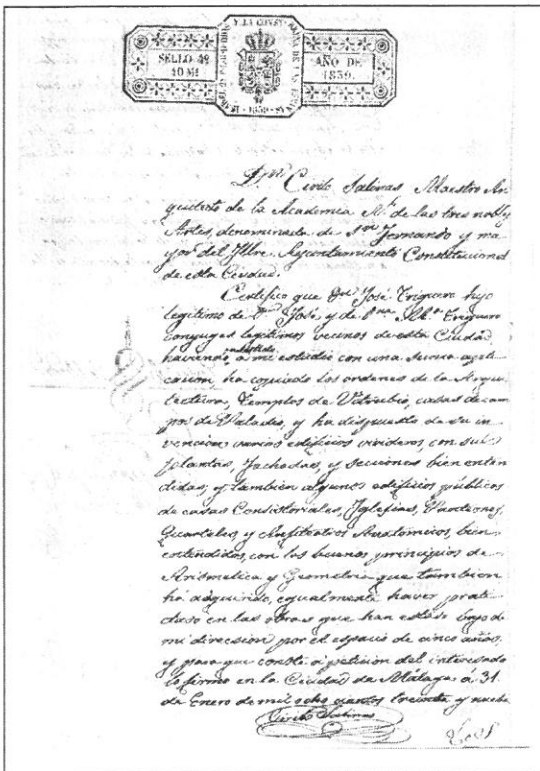 SELLO 4º AÑO DE
40 MS 1839.
Dn. Cirilo Salinas Maestro Ar
quitecto de la Academia Rl. de las tres nobles
Artes, denominada de Sn. Fernando y ma
yor del Iltre. Ayuntamiento Constitucional
de esta Ciudad.
Certifico que Dn. José Trigueros hijo
legitimo de Dn. José, y de Dña.
conyuges legitimos vecinos de esta Ciudad,
haviendo asistido a mi estudio con una suma apli-
cacion, ha copiado los ordenes de la Arqui
tectura, Templos de Vitrubio, casas de cam
po de Paladio, y ha dispuesto de su in
vencion varios edificios con sus
plantas, fachadas, y secciones bien enten
didas, y tambien algunos edificios publicos
de casas Consistoriales, Iglesias, Panteones,
Quarteles, y Anfiteatros Anatomicos, bien
entendidos, con los buenos principios de
Arismetica y Geometria que tambien
há adquirido, egualmente haver prati
cado en las obras que han estado bajo de
mi direccion por el espacio de cinco años,
y para que conste á peticion del interesado
lo firmo en la Ciudad de Málaga á 31
de Enero de mil ocho cientos treinta y nueve
Cirilo Salinas